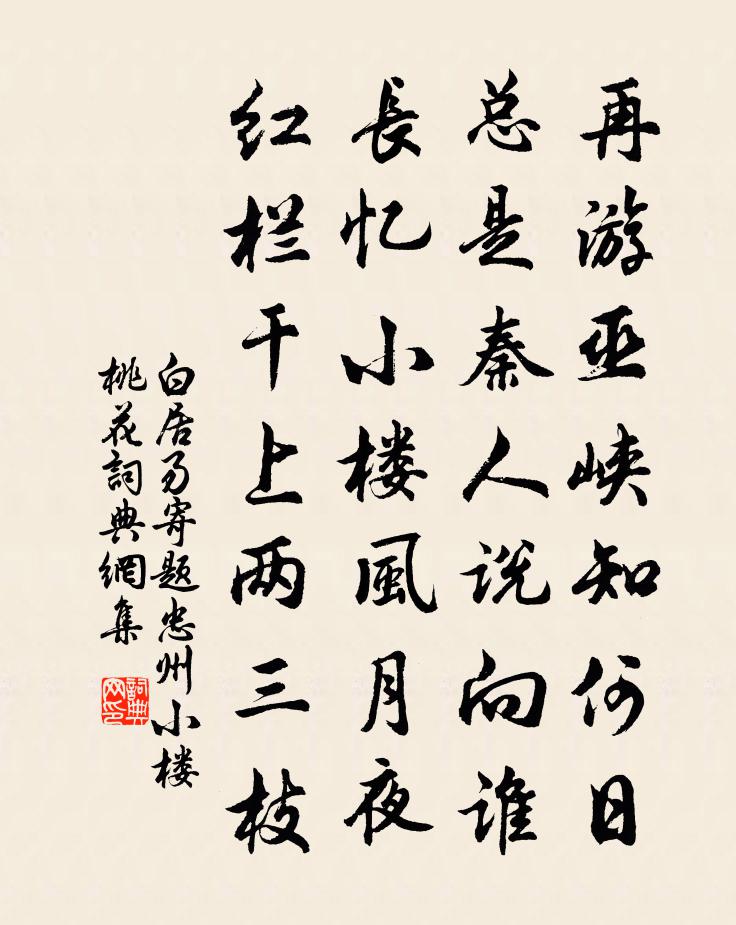 再游巫峡知何日
总是秦人说向谁
長忆小楼風月夜
红栏干上两三枝
白居易寄题忠州小楼
桃花詞典網集
詞典网印